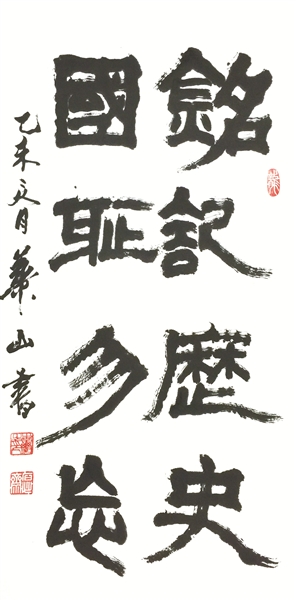 銘記歷史
國恥勿忘
乙未文月華山書